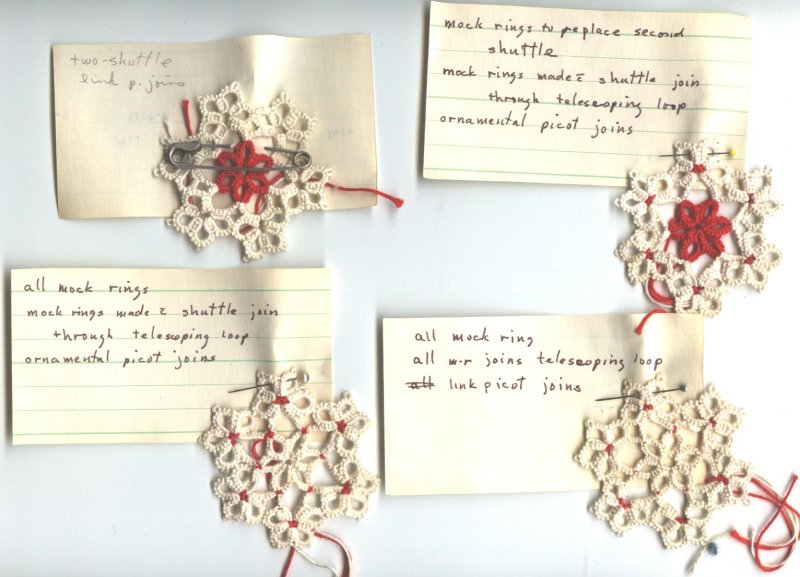 two-shuttle
link p. joins
mock rings to replace second
shuttle
mock rings made c̄ shuttle join
through telescoping loop
ornamental picot joins
all mock rings
mock rings made c̄ shuttle join
through telescoping loop
ornamental picot joins
all mock ring
all m-r joins telescoping loop
all link picot joins